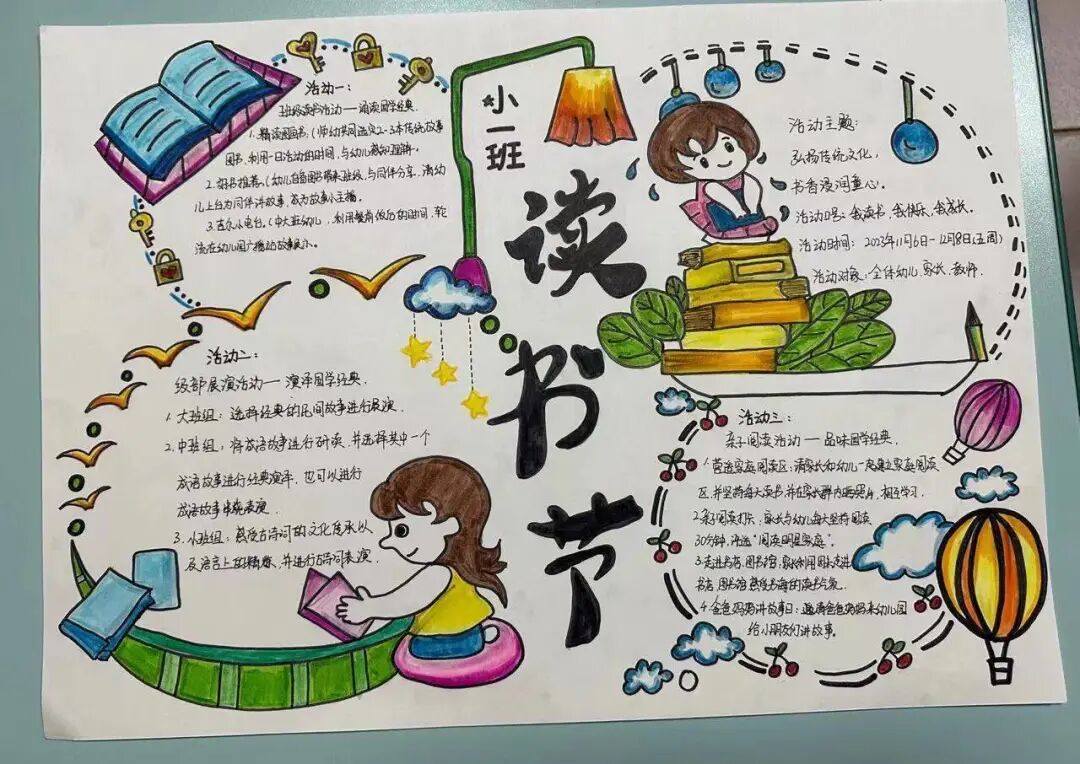 小一班
读书节
活动一：
班级读书活动——诵读国学经典.
1.精读图画书.（师幼共同选定2-3本传统故事
图书.利用一日活动的时间,与幼儿感知理解.
2.好书推荐.（幼儿自备图书带来班级,与同伴分享.请幼
儿上台为同伴讲故事,成为故事小主播.
3.吉尔小电台.（中大班幼儿.利用餐前饭后的时间,轮
流在幼儿园广播站故事展示.
活动主题:
弘扬传统文化,
书香浸润童心.
活动口号:我读书,我快乐,我成长.
活动时间: 2023年11月6日-12月8日(五周)
活动对象:全体幼儿、家长、教师.
活动二:
级部展演活动——演泽国学经典.
1.大班组:选择经典的民间故事进行展演.
2.中班组:将成语故事进行研读,并选择其中一个
成语故事进行经典演泽,也可以进行
成语故事串烧表演.
3.小班组:感受古诗词的文化传承以
及语言上的精炼,并进行古诗词表演.
活动三:
亲子阅读活动——品味国学经典.
1.营造家庭阅读区:请家长和幼儿一起建立家庭阅读
区,并坚持每天读书,并在家长群内晒照片,相互学习.
2.亲子阅读打卡:家长与幼儿每天坚持阅读
30分钟,评选"阅读明星家庭".
3.走进书店、图书馆:家长利用周末走进
书店、图书馆感受书海的读书气氛.
4.爸爸妈妈讲故事日:邀请爸爸妈妈来幼儿园
给小朋友们讲故事.